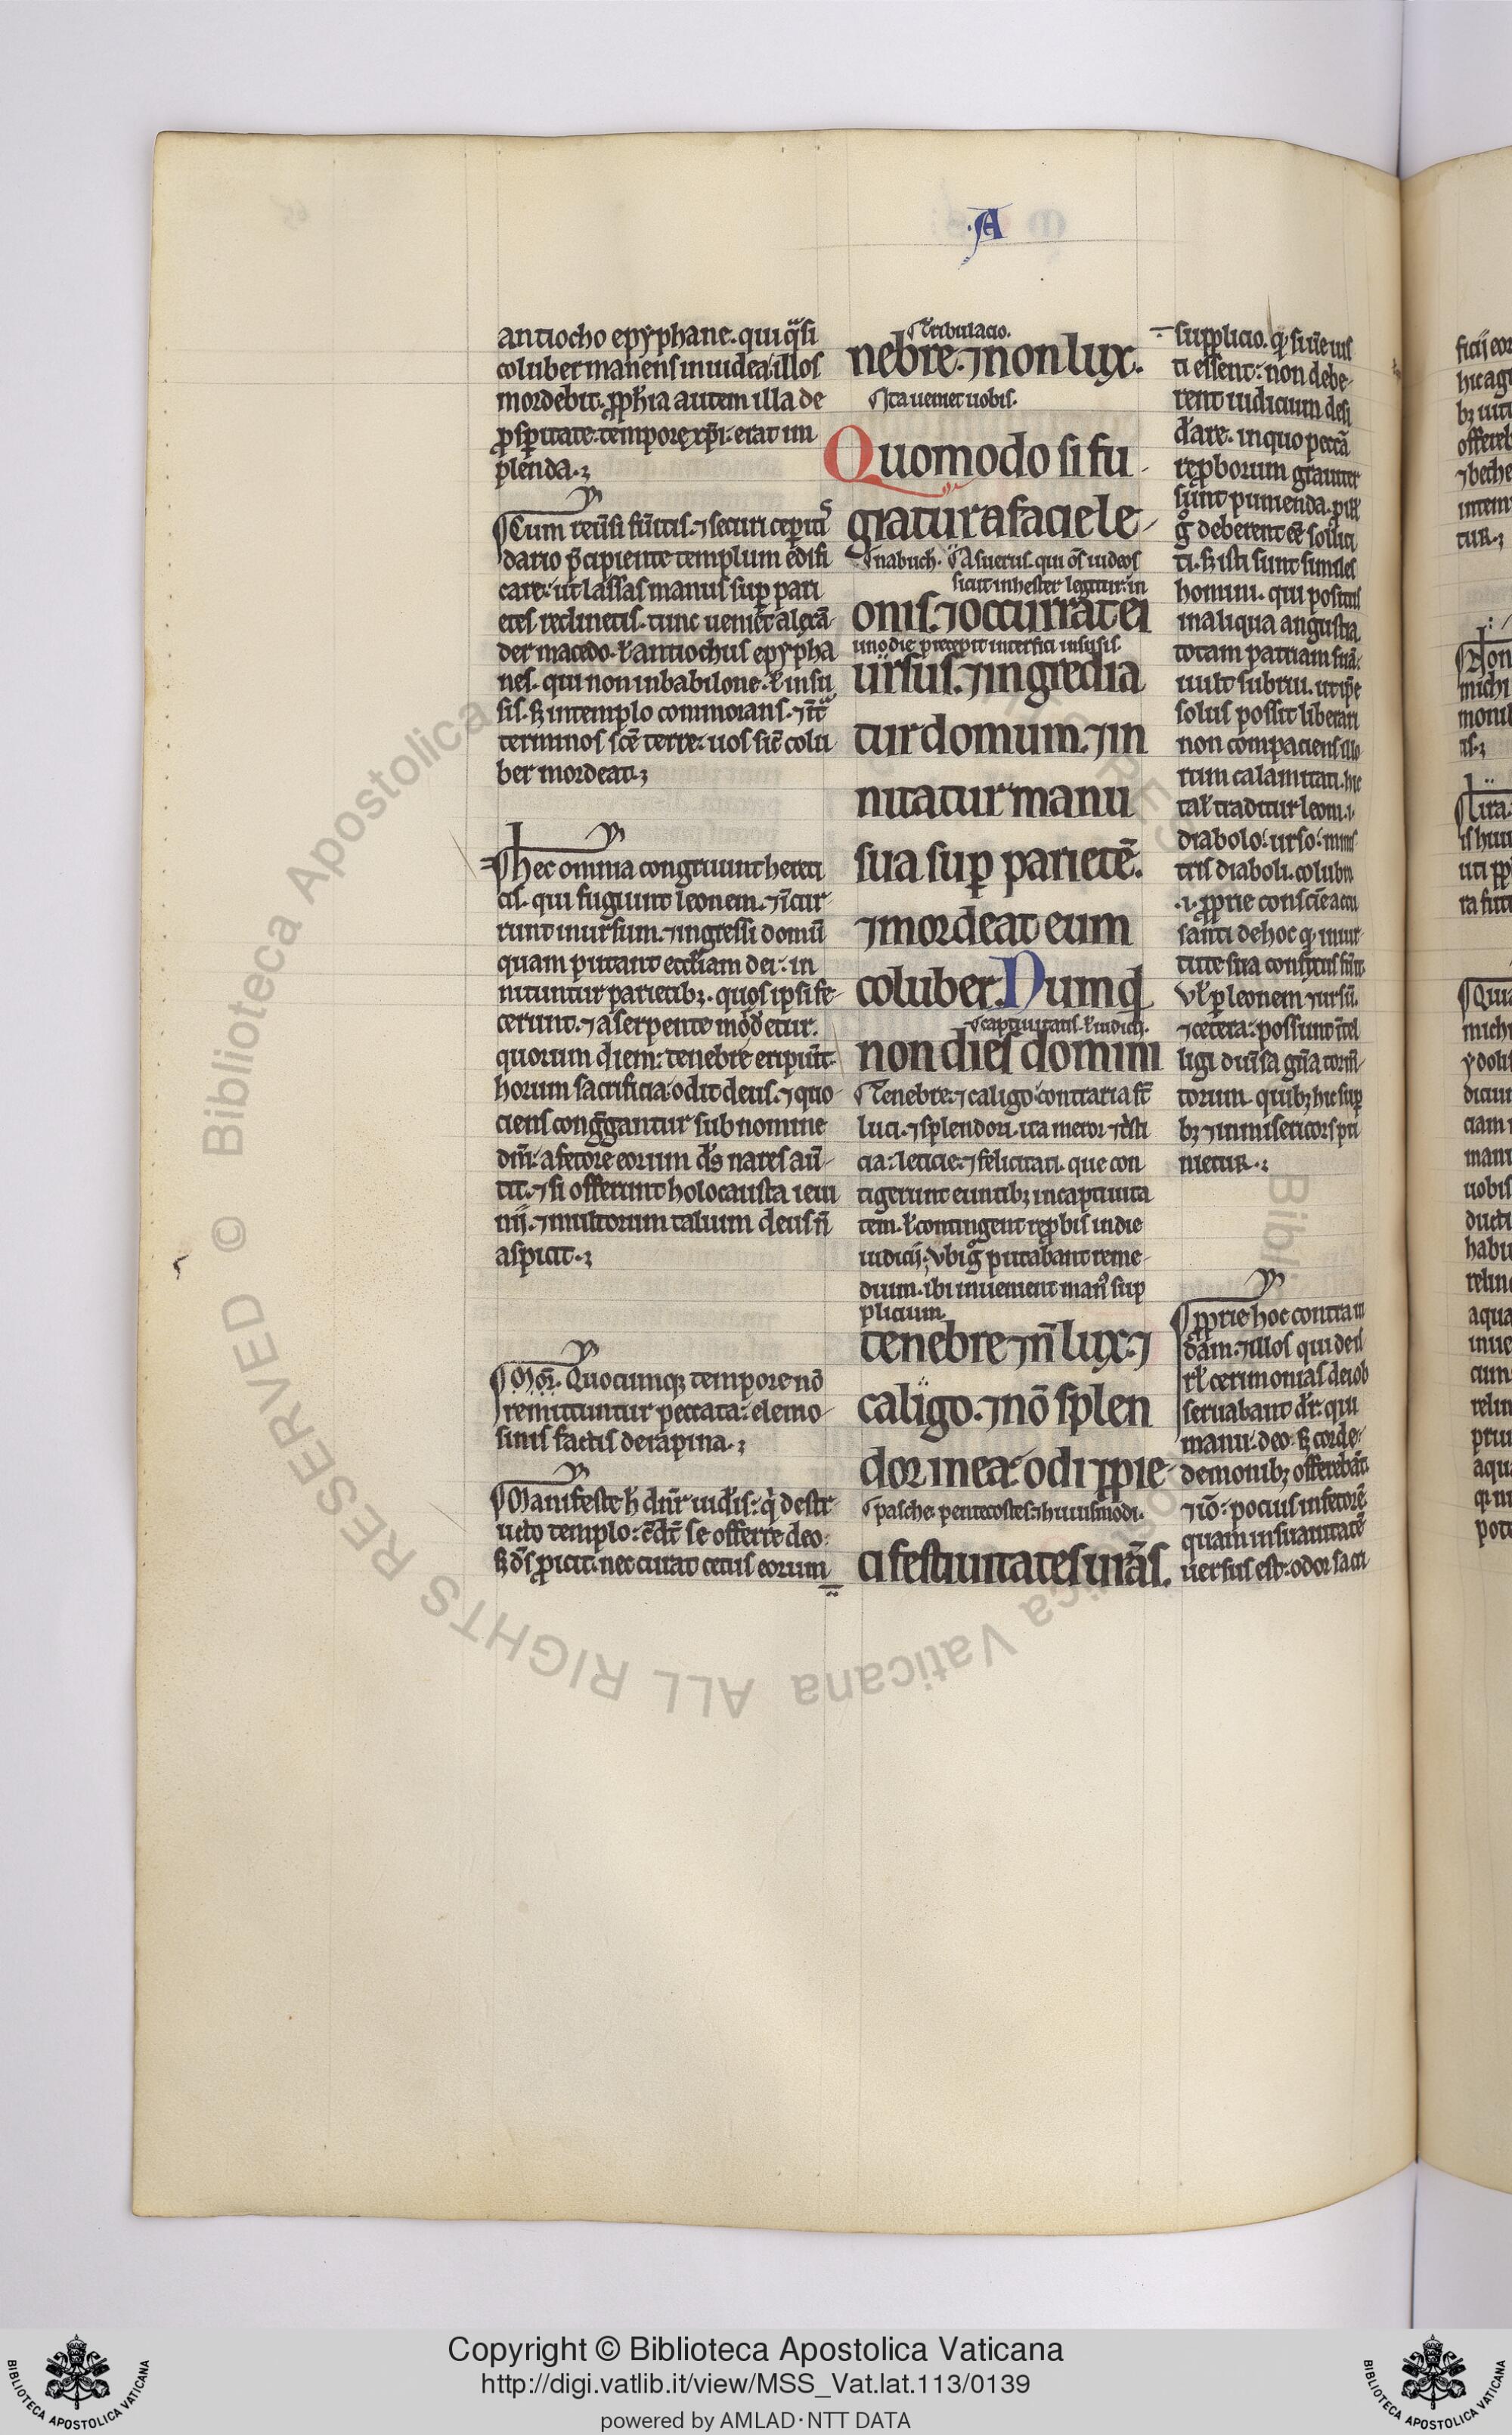 ·A
antiocho epyphane. qui q̃si
coluber manens in iudea: illos
mordebit. ꝓph̃ia autem illa de
ꝓsꝑitate: tempore xp̃i. erat im
plenda.
¶ Cum reũsi fũitis. ⁊ securi ceperitis
dario p̃cipiente templum edifi
care: ut lassas manus suꝑ pari
etes reclinetis. tunc ueniet alexã
der macedo. ł antiochus epypha
nes. qui non in babilone. ł in su
sis. sꝫ in templo commorans. ⁊ ĩt̃
terminos sc̃e terre: uos sic̃ colu
ber mordeat.
¶ hec omnia congruunt hereti
cis. qui fugiunt leonem. ⁊ ĩcur
runt in ursum. ⁊ ingressi domũ
quam putant eccl̃iam dei: in
nituntur parietibꝫ. quos ipsi fe
cerunt. ⁊ a serpente mordetur.
quorum diem: tenebre eripiũt.
horum sacrificia odit deus. ⁊ quo
ciens congregantur sub nomine
dñi: a fetore eorum ds̃ nares au
tit. ⁊ si offerunt holocausta ieiu
nij. ⁊ multorum talium deus ñ
aspicit.
¶ Mor̃. Quocumqꝫ tempore nõ
remittuntur peccata: elemo
sinis factis de rapina.
¶ Manifeste h̃ dñr iudeis: q̃ destr
ucto templo: c̃dũt se offerre deo:
sꝫ ds̃ ꝓicit. nec curat cetus eorum
¶ Tribulacio.
nebre. ⁊ non lux.
¶ Ita ueniet uobis.
Quomodo si fu
giat uir a facie le
¶ nabuch̃. ¶ Asuerus. qui oẽs iudeos
sicut in hester legitur: in
onis. ⁊ occurrat ei
uno die precepit interfici in susis.
ursus. ⁊ ingredia
tur domum. ⁊ in
nitatur manu
sua suꝑ parietẽ.
⁊ mordeat eum
coluber. Numqd̃
¶ captiuitatis. ł iudicij.
non dies domini
¶ Tenebre: ⁊ caligo: contraria st̃
luci. ⁊ splendori. ita meror ⁊ tristi
cia: leticie: ⁊ felicitati. que con
tigerunt euntibꝫ in captiuita
tem. ł contingent reꝓbis in die
iudicij. Vbi g̃ putabant reme
dium. ibi inuenient mañ sup
plicium.
tenebre ⁊ ñ lux: ⁊
caligo. ⁊ nõ splen
dor in ea: odi ⁊ ꝓie
¶ pasche. pentecostes. ⁊ huiusmodi.
ci festiuitates ur̃as.
supplicio. qꝫ si ueri ius
ti essent: non debe
rent iudicium desi
dare. in quo peccã
reꝓborum grauiter
sunt punienda. plus
g̃ deberent eẽ solliciti
ti. sꝫ isti sunt similes
homini. qui positus
in aliqua angustia
totam patriam suã:
uult subrui. ut ip̃e
solus possit liberari
non compaciens illo
rum calamitati. hic
talis traditur leoni .i.
diabolo: urso: minis
tris diaboli. colubro
.i. ꝓprie consciẽ accu
santi de hoc qꝫ in iur
ł ꝑ leonem ⁊ ursũ.
⁊ cetera: possunt ĩtel
ligi diũsa gña torm̃
torum. quibꝫ hic suꝑ
bꝫ ⁊ inmisericors pu
nietur.
¶ ꝓprie hoc contra iu
dam: ⁊ illos qui de isr̃l
cerimonias dei ob
seruabant dr̃: qui
manu: deo: sꝫ corde:
demonibꝫ offerebãt.
⁊ iõ: pocius in fetorẽ
quam in suauitatẽ
uersus est: odor sacri
Biblioteca Apostolica Vaticana ALL RIGHTS RESERVED ©
Copyright © Biblioteca Apostolica Vaticana
http://digi.vatlib.it/view/MSS_Vat.lat.113/0139
powered by AMLAD·NTT DATA
BIBLIOTECA APOSTOLICA VATICANA
BIBLIOTECA APOSTOLICA VATICANA